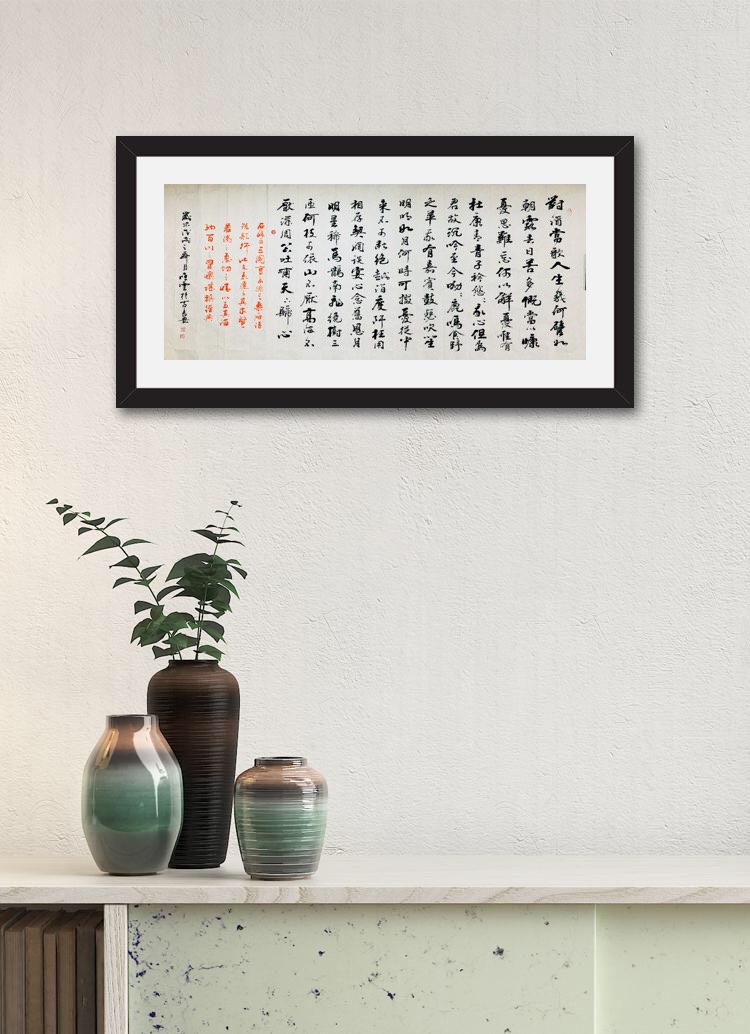 對酒當歌人生幾何譬如
朝露去日苦多慨當以慷
憂思難忘何以解憂惟有
杜康青青子衿悠悠我心但為
君故沉吟至今呦呦鹿鳴食野
之苹我有嘉賓鼓瑟吹笙
明明如月何時可掇憂從中
來不可斷絕越陌度阡枉用
相存契闊談宴心念舊恩月
明星稀烏鵲南飛繞樹三
匝何枝可依山不厭高海不
厭深周公吐哺天下歸心
三國曹孟德之樂府詩
短歌行